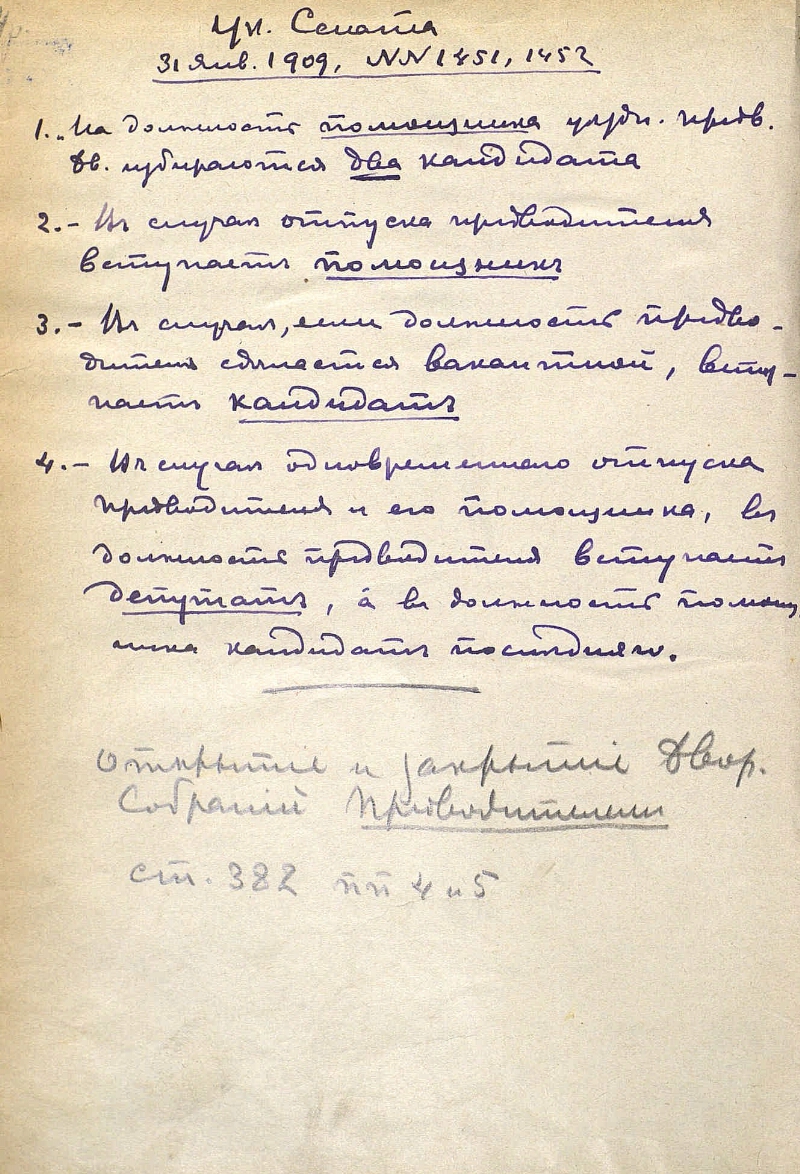 Ук. Сената
31 Янв. 1909, NN 1451, 1452
1. „На должность помощника уездн. предв.
Дв. избираются два кандидата
2. - Въ случаѣ отпуска предводителя
вступаетъ помощникъ
3. - Въ случаѣ, если должность предво-
дителя сдѣлается вакантной, всту-
паетъ кандидатъ
4. - Въ случаѣ одновременнаго отпуска
предводителя и его помощника, въ
должность предводителя вступаетъ
депутатъ, а въ должность помощ
ника кандидатъ послѣдняго.
Открытіе и закрытіе Двор.
Собраній Предводителем
ст. 382 пп 4 и 5